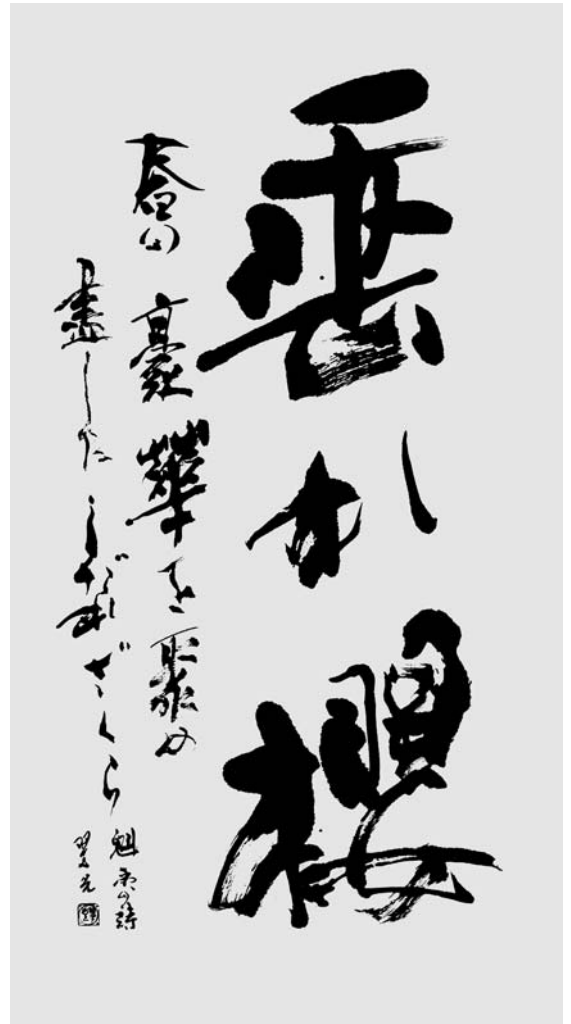 垂れ櫻
春の豪華を聚め
盡したしだれざくら
魁夷の詩